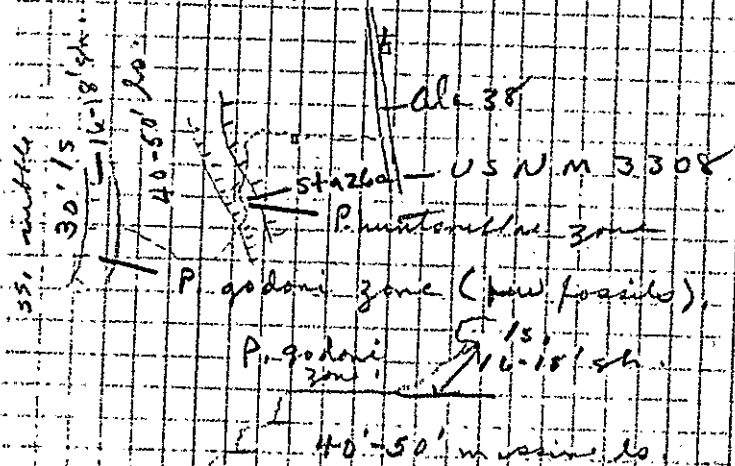 ss, rubble
30' ls
16-18' sh.
40-50' ls.
Ala 38
Sta 26a — USNM 3308
P. huntsvillae zone
P. godoni zone (few fossils).
ls.
P. godoni zone
16-18' sh.
40'-50' massive ls.